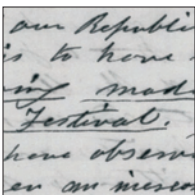 our Republi
is to have
ing made
Festival.
have observ
en an incre